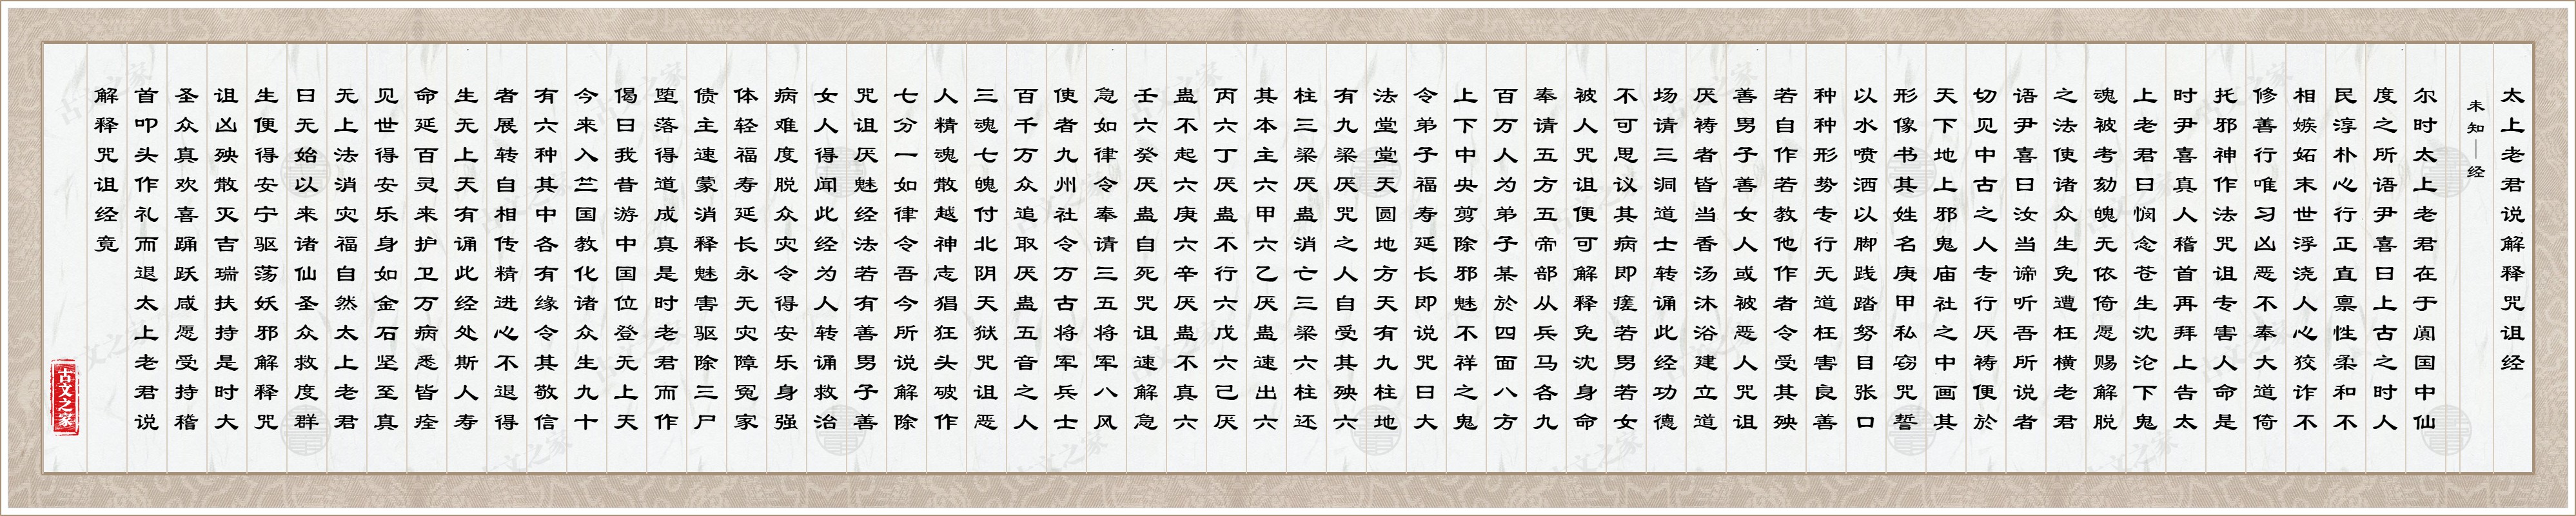 太上老君说解释咒诅经
未知—经
尔时太上老君在于阗国中仙
度之所语尹喜曰上古之时人
民淳朴心行正直禀性柔和不
相嫉妬末世浮浇人心狡诈不
修善行唯习凶恶不奉大道倚
托邪神作法咒诅专害人命是
时尹喜真人稽首再拜上告太
上老君曰悯念苍生沈沦下鬼
魂被考劾魄无依倚愿赐解脱
之法使诸众生免遭枉横老君
语尹喜曰汝当谛听吾所说者
切见中古之人专行厌祷便於
天下地上邪鬼庙社之中画其
形像书其姓名庚甲私窃咒誓
以水喷洒以脚践踏努目张口
种种形势专行无道枉害良善
若自作若教他作者令受其殃
善男子善女人或被恶人咒诅
厌祷者皆当香汤沐浴建立道
场请三洞道士转诵此经功德
不可思议其病即瘥若男若女
被人咒诅便可解释免沈身命
奉请五方五帝部从兵马各九
百万人为弟子某於四面八方
上下中央剪除邪魅不祥之鬼
令弟子福寿延长即说咒曰大
法堂堂天圆地方天有九柱地
有九梁厌咒之人自受其殃六
柱三梁厌蛊消亡三梁六柱还
其本主六甲六乙厌蛊速出六
丙六丁厌蛊不行六戊六己厌
蛊不起六庚六辛厌蛊不真六
壬六癸厌蛊自死咒诅速解急
急如律令奉请三五将军八风
使者九州社令万古将军兵士
百千万众追取厌蛊五音之人
三魂七魄付北阴天狱咒诅恶
人精魂散越神志猖狂头破作
七分一如律令吾今所说解除
咒诅厌魅经法若有善男子善
女人得闻此经为人转诵救治
病难度脱众灾令得安乐身强
体轻福寿延长永无灾障冤家
债主速蒙消释魅害驱除三尸
堕落得道成真是时老君而作
偈曰我昔游中国位登无上天
今来入竺国教化诸众生九十
有六种其中各有缘令其敬信
者展转自相传精进心不退得
生无上天有诵此经处斯人寿
命延百灵来护卫万病悉皆痊
见世得安乐身如金石坚至真
无上法消灾福自然太上老君
曰无始以来诸仙圣众救度群
生便得安宁驱荡妖邪解释咒
诅凶殃散灭吉瑞扶持是时大
圣众真欢喜踊跃咸愿受持稽
首叩头作礼而退太上老君说
解释咒诅经竟
古文之家